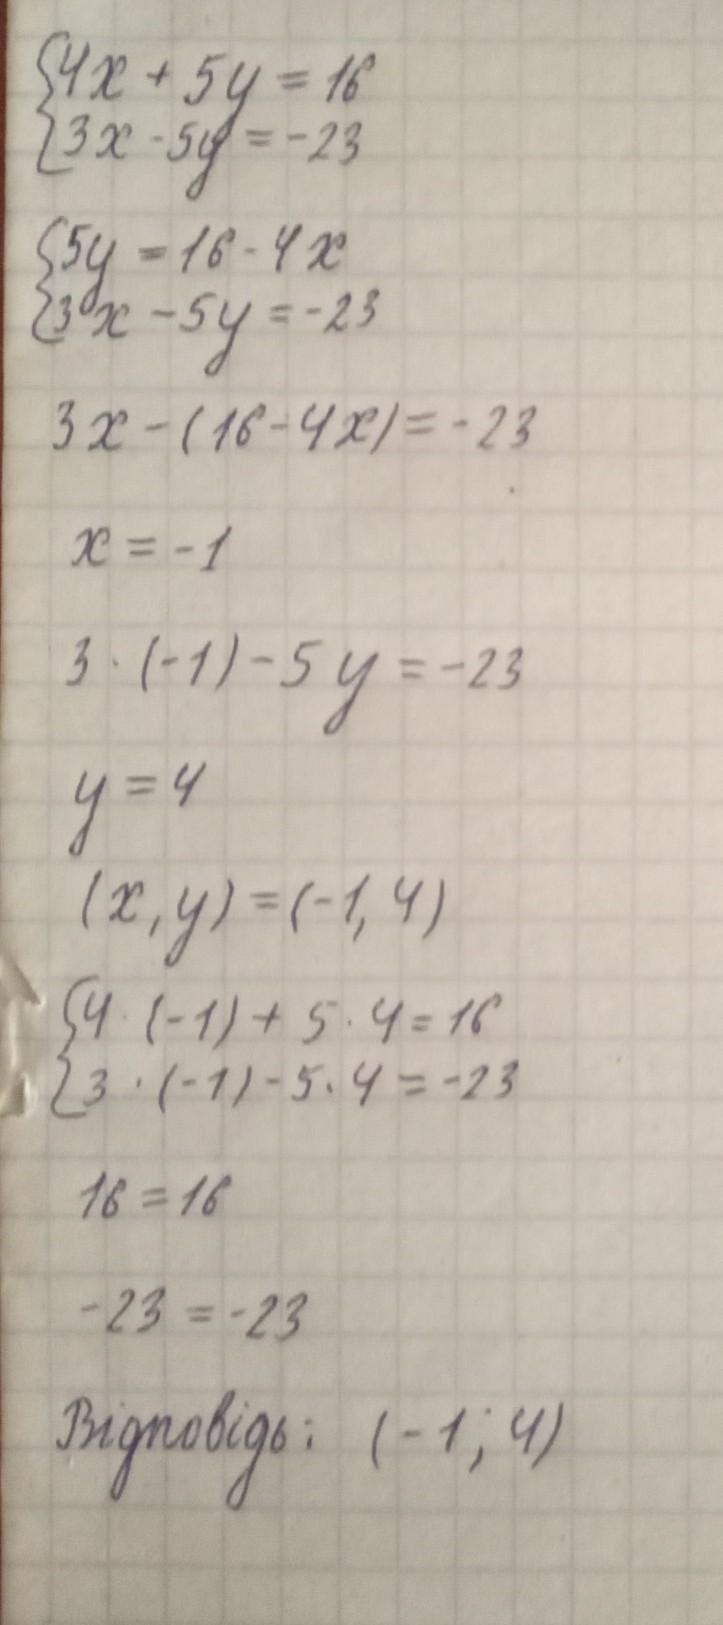 4x + 5y = 16
3x - 5y = -23
5y = 16 - 4x
3x - 5y = -23
3x - (16 - 4x) = -23
x = -1
3 · (-1) - 5y = -23
y = 4
(x, y) = (-1, 4)
4 · (-1) + 5 · 4 = 16
3 · (-1) - 5 · 4 = -23
16 = 16
-23 = -23
Відповідь: (-1; 4)